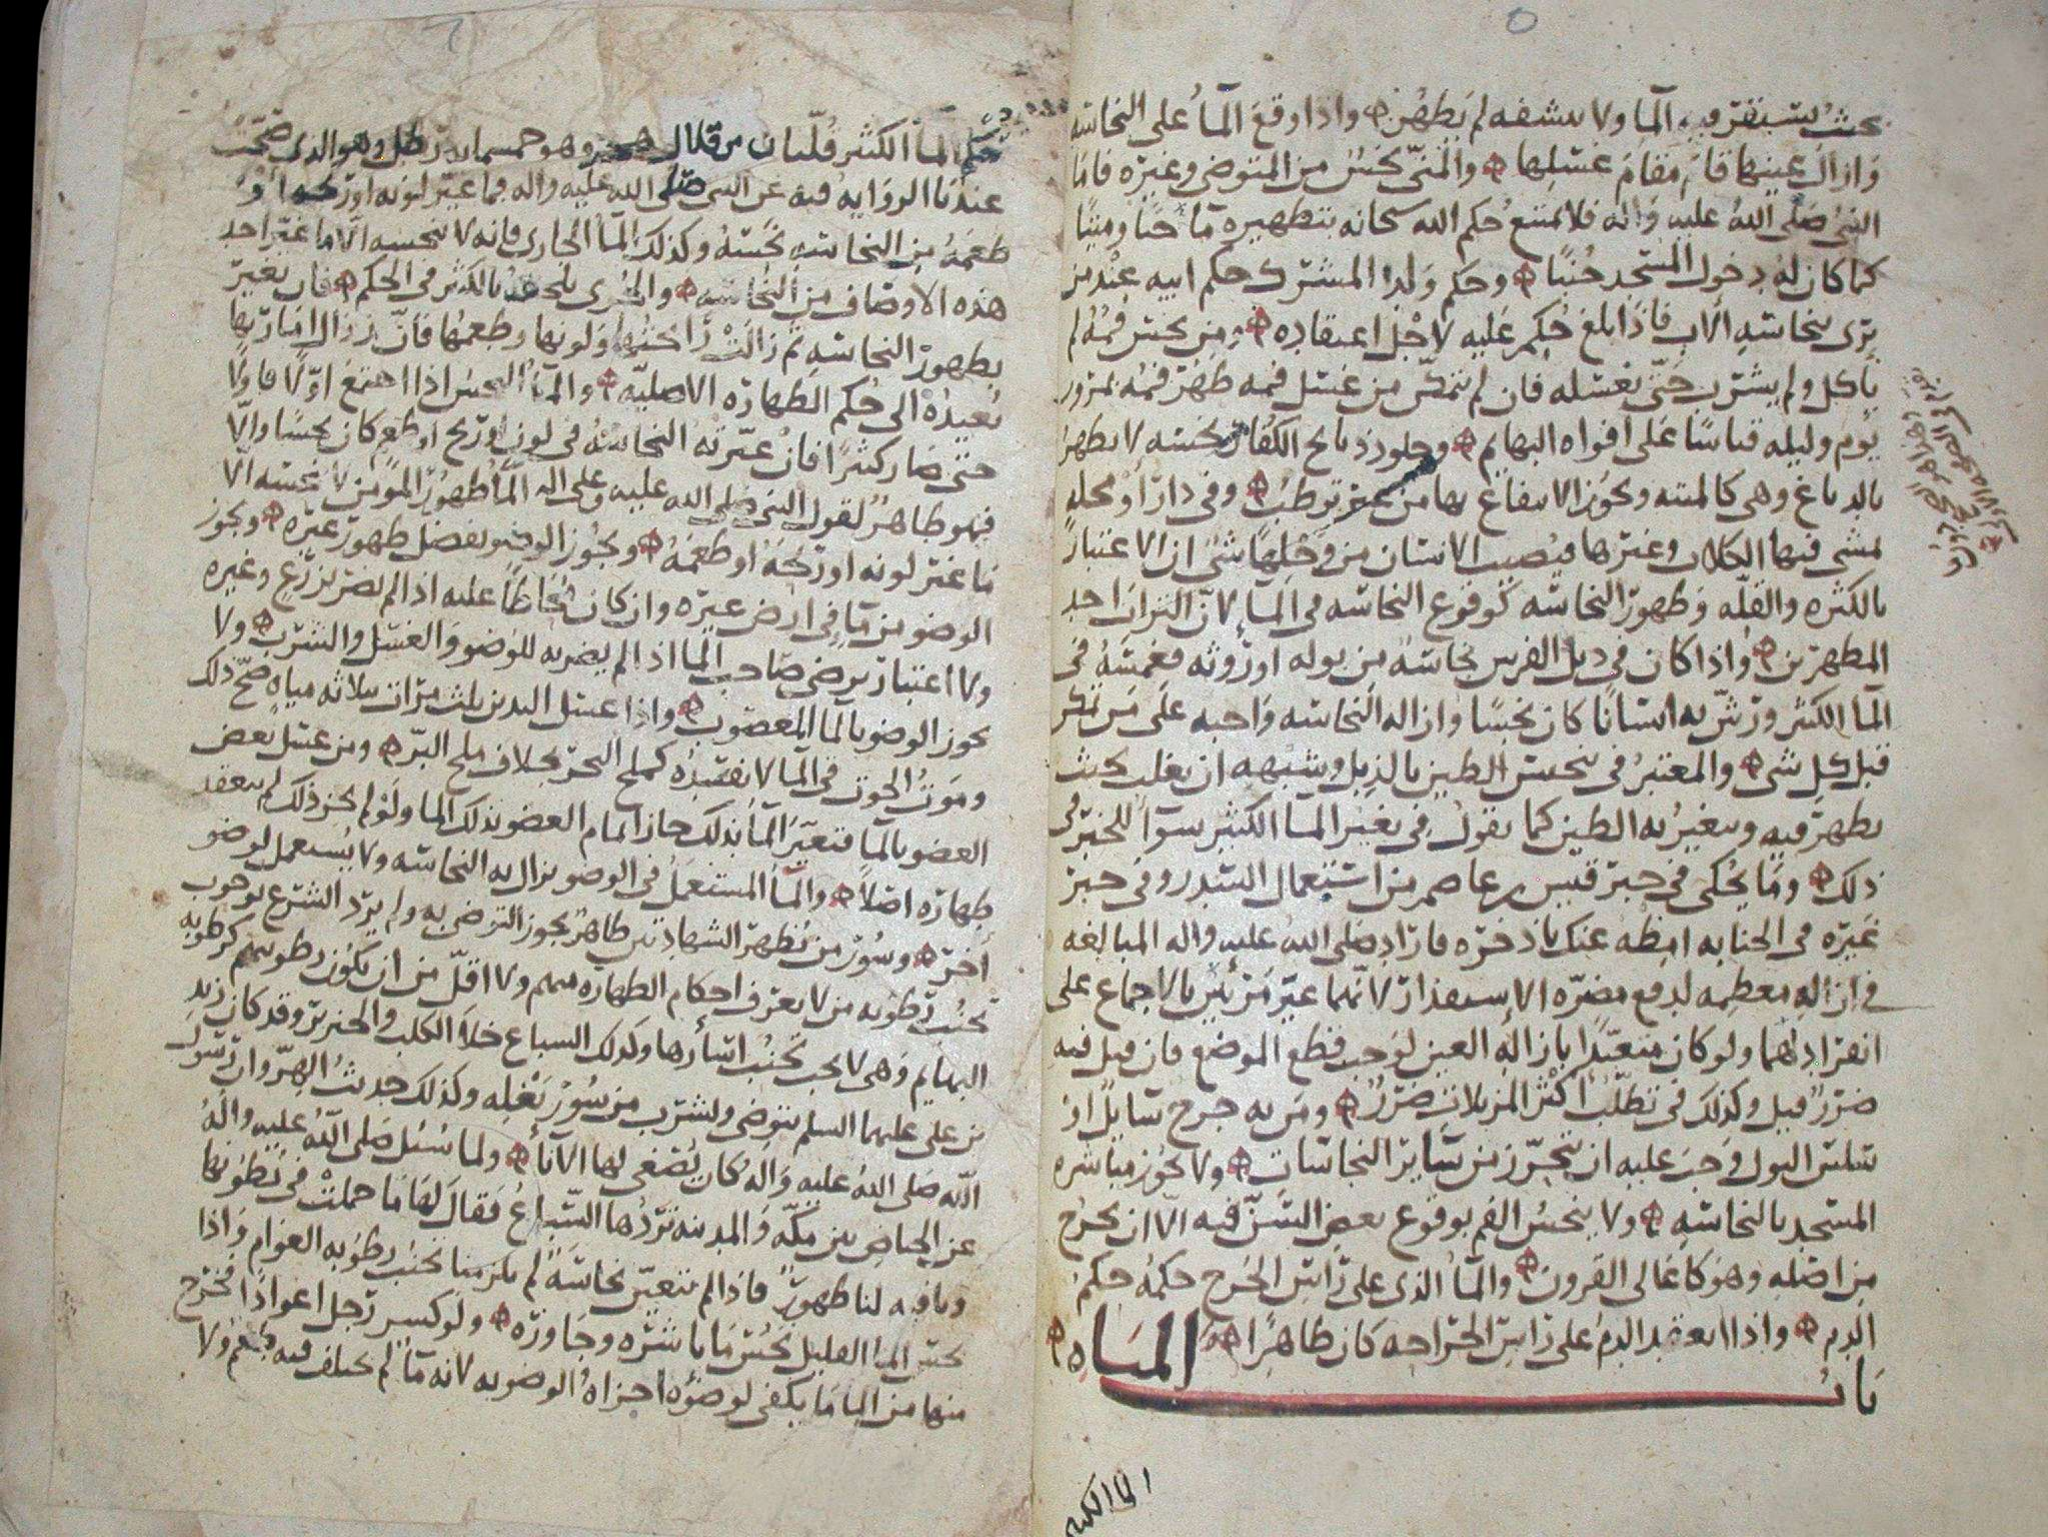 بحيث يستنقع فيه الما ولا ينشفه لم يطهر واذا وقع الما على النجاسه
وازال عينها قام مقام غسلها والمني نجس من المتوضي وغيره فاما
النبي صلى الله عليه واله فلا يمتنع حكم الله سبحانه بتطهيره ما حيا وميتا
كما كان له دخول المسجد جنبا وحكم ولد المشرك حكم ابيه عند من
يرى بنجاسه الاب فاذا بلغ حكم عليه لاجل اعتقاده ومن نجس فمه لم
ياكل ولم يشرب حتى يغسله فان لم يتمكن من غسل فمه طهر فمه بمرور
يوم وليله قياسا على افواه البهايم وجلود ذبايح الكفار نجسه لا تطهر
بالدباغ وهي كالميته ويجوز الانتفاع بها من غير ترطب وفي دار او محله
تمشي فيها الكلاب وغيرها فيصيب الانسان من وحلها شي ان الاعتبار
بالكثره والقله وظهور النجاسه كوقوع النجاسه في الما لان التراب احد
المطهرين واذا كان في ذيل الفرس نجاسه من بوله او روثه فغمسه في
الما الكثير ورش به انسانا كان نجسا وازاله النجاسه واجبه على من تمكن
قبل كل شي والمعتبر في تنجيس الطين بالزبل وشبهه ان يغلب بحيث
يظهر فيه ويتغير به الطين كما نقول في تغير الما الكثير سوا للخبر في
ذلك وما يحكى في خبر قيس بن عاصم من استعمال السدر وفي خبر
غيره في الجنابه امطه عنك باذخره فاراد صلى الله عليه واله المبالغه
في ازاله معظمه لدفع مضره الاستقذار لانهما غير مزيلين بالاجماع على
انفرادهما ولو كان متعبدا بازاله العين لوجب قطع الموضع فان قيل فيه
ضرر قيل وكذلك في تطلب اكثر المزيلات ضرر ومن به جرح سايل او
سلس البول وجب عليه ان يتحرز من ساير النجاسات ولا يجوز مباشره
المسجد بالنجاسه ولا ينجس الفم بوقوع بعض السن فيه الا ان يخرج
من اصله وهو كاعالي القرون والما الذي على راس الجرح حكمه حكم
الدم واذا انعقد الدم على راس الجراحه كان طاهرا
باب المياه
الما الكثير
حكم الما الكثير قلتان من قلال هجر وهو خمسمايه رطل وهو الذي صحت
عندنا الروايه فيه عن النبي صلى الله عليه واله فما غير لونه او ريحه او
طعمه من النجاسه نجسه وكذلك الما الجاري فانه لا ينجسه الا ما غير احد
هذه الاوصاف من النجاسه والجري يلحقه بالكثير في الحكم فان تغير
بظهور النجاسه ثم زالت رايحتها ولونها وطعمها فان زوال امارتها
يعيده الى حكم الطهاره الاصليه والما النجس اذا اجتمع اولا فاولا
حتى صار كثيرا فان غيرته النجاسه في لون او ريح او طعم كان نجسا والا
فهو طاهر لقول النبي صلى الله عليه وعلى اله الما طهور المومن لا ينجسه الا
ما غير لونه او ريحه او طعمه ويجوز الوضو بفضل طهور غيره ويجوز
الوضو من ما في ارض غيره وان كان محاطا عليه اذا لم يضر بزرع وغيره
ولا اعتبار برضى صاحب الما اذا لم يضر به للوضو والغسل والشرب ولا
يجوز الوضو بالما المغصوب واذا غسل اليدين ثلث مرات بثلاثه مياه صح ذلك
وموت الحوت في الما لا يفسده كملح البحر بخلاف ملح البر ومن غسل بعض
العضو بالما فتغير الما بذلك جاز اتمام العضو بذلك الما ولو لم يجز ذلك لم ينعقد
طهاره اصلا والما المستعمل في الوضو يزال به النجاسه ولا يستعمل لوضو
اخر وسور من يظهر الشهادتين طاهر يجوز التوضي به ولم يرد الشرع بوجوب
تجنب رطوبه من لا يعرف احكام الطهاره منهم ولا اقل من ان يكون رطوبتهم كرطوبه
البهايم وهي لا يجب تجنب اسأرها وكذلك السباع خلا الكلب والخنزير وقد كان زيد
بن علي عليهما السلم يتوضى ويشرب من سور بغله وكذلك حديث الهر وان رسول
الله صلى الله عليه واله كان يصغي لها الانا ولما سئل صلى الله عليه واله
عن الحياض بين مكه والمدينه تردها السباع فقال لها ما حملت في بطونها
وما فيه لنا طهور فاذا لم تتعين نجاسه لم يلزمنا تجنب رطوبه العوام واذا
نجس الما القليل نجس ما باشره وجاوره ولو كسر رجل اعوادا فخرج
منها من الما ما يكفي لوضوه اجزاه الوضو به لانه ما لم يختلف فيه طعم ولا